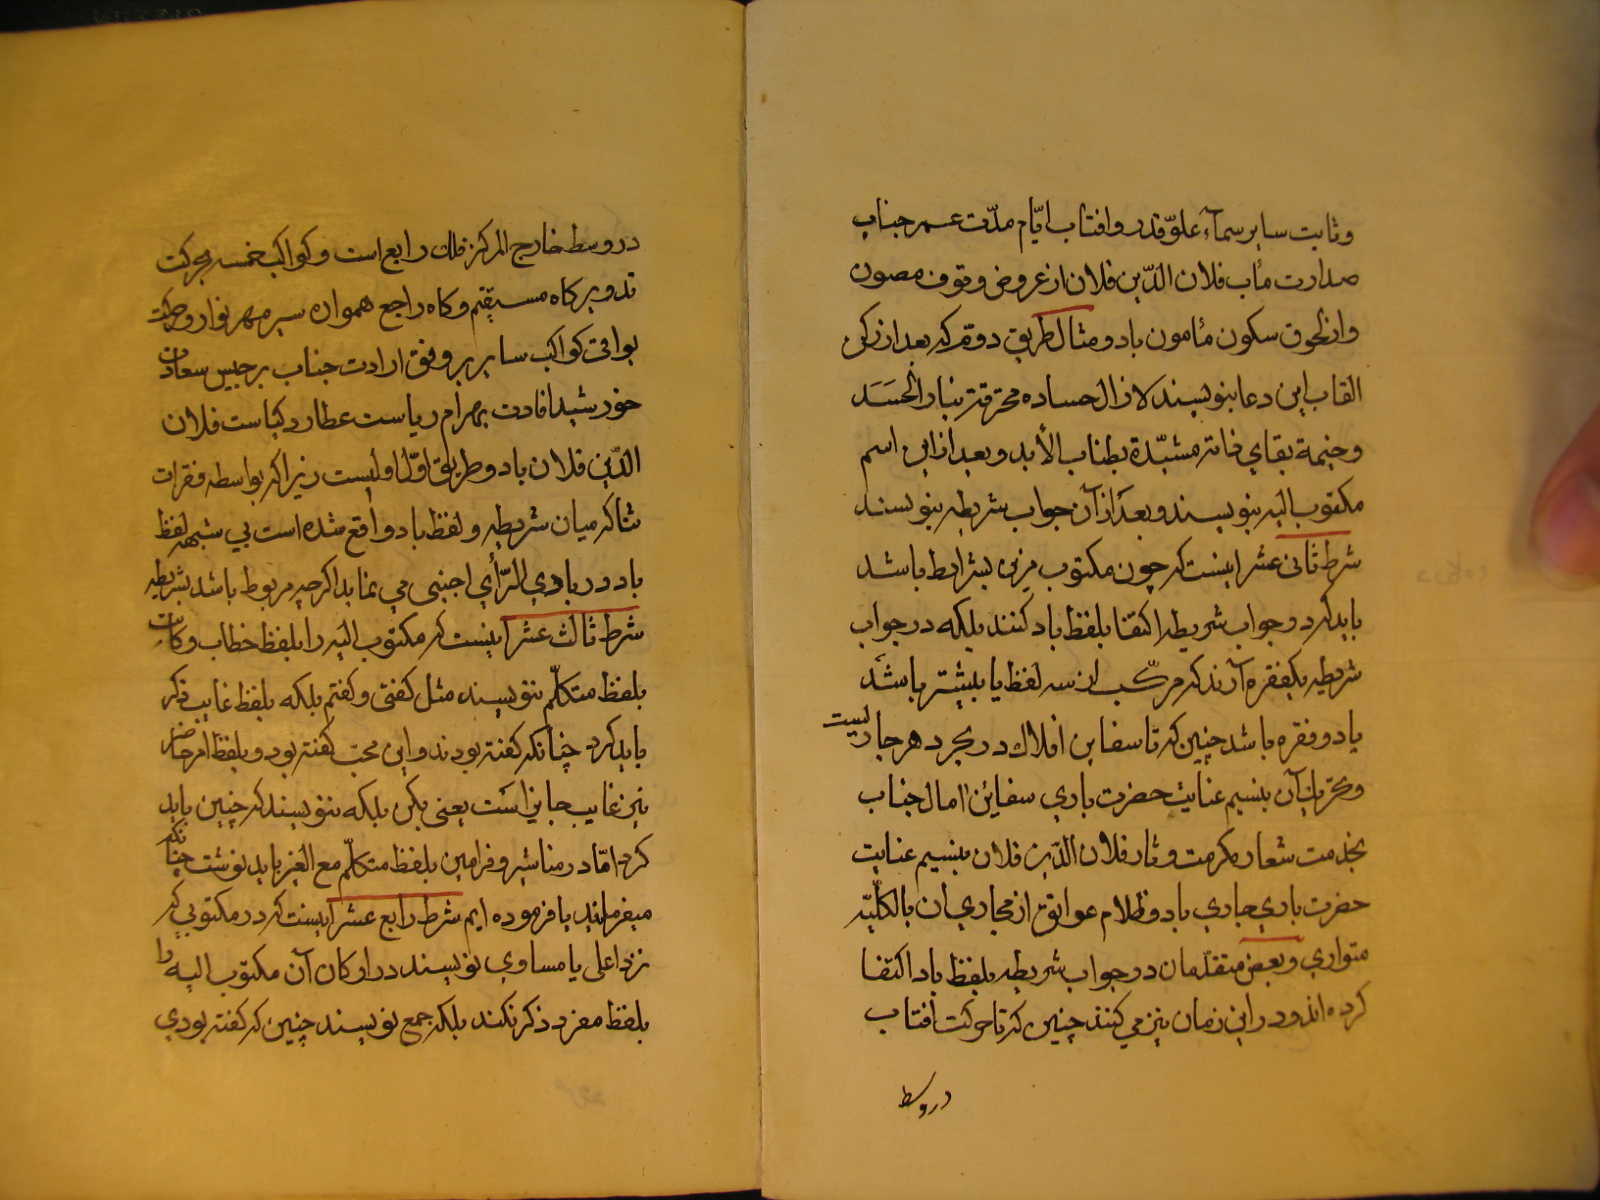 وثابت سایر سمآء علوّ قدر و افتاب ایّام مدّت عمر جناب
صدارت مأب فلان الدّین فلان از عروض وقوف مصون
واز لحوق سکون مأمون باد و مثال طریق دوّم که بعد از ذکر
القاب این دعا بنویسند لا زال حساده محترقة بنار الحَسَد
وخیمة بقای ذاته مشیّدة بطناب الأبد و بعد از این اسم
مکتوب الیه بنویسند و بعد از آن جواب شریطه بنویسند
شرط ثانی عشر اینست که چون مکتوب مزین بشرایط باشد
باید که در جواب شریطه اکتفا بلفظ باد کنند بلکه در جواب
شریطه یکفقره آرند که مرکّب از سه لفظ یا بیشتر باشد
یا دو فقره باشد چنین که تا سفاین افلاک در بحر دهر جاریست
وتحریک آن بنسیم عنایت حضرت باری سفاین امال جناب
بخدمت شعار مکرمت دثار فلان الدّین فلان بنسیم عنایت
حضرت باری جاری باد و ظلام عوایق از مجاری آن بالکلّیّه
متواری وبعض متقدّمان در جواب شریطه بلفظ باد اکتفا
کرده اند و در این زمان نیز می کنند چنین که تا حرکت افتاب
در وسط
در وسط خارج المرکز فلک رابع است و کواکب خمسه بحرکت
تدویر کاه مستقیم و کاه راجع همواره سیر مهر انوار و حرکت
بواقی کواکب سایر بر وفق ارادت جناب برجیس سعادت
خورشید افادت بهرام ریاست عطارد کیاست فلان
الدّین فلان باد و طریق اوّل اولیست زیرا که بواسطه فقرات
ثنا که میان شریطه و لفظ باد واقع شده است بی شبهه لفظ
باد در بادی الرّأی اجنبی می نماید اکرچه مربوط باشد بشریطه
شرط ثالث عشر اینست که مکتوب الیه را بلفظ خطاب و کاتب
بلفظ متکلّم ننویسند مثل کفتی و کفتم بلکه بلفظ غایب ذکر
باید کرد چنانکه کفته بودند و این محبّ کفته بود و بلفظ امر حاضر
نیز غایب جایز است یعنی بکن بلکه بنویسند که چنین باید
کرد امّا در مناشیر و فرامین بلفظ متکلّم مع الغیر باید نوشت چنانکه
میفرماییم یا فرموده ایم شرط رابع عشر اینست که در مکتوبی که
نزد اعلی یا مساوی نویسند در ارکان آن مکتوب الیه را
بلفظ مفرد ذکر نکنند بلکه جمع نویسند چنین که کفته بودی